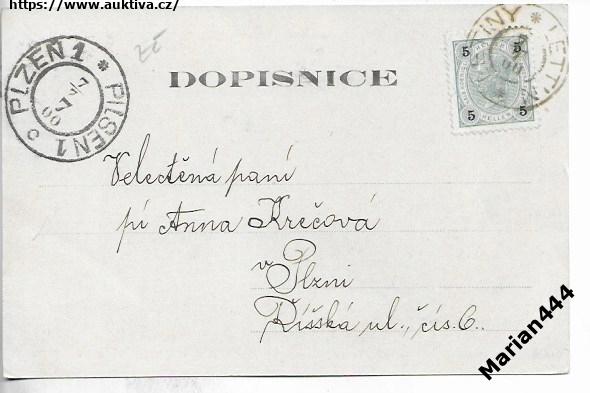 https://www.auktiva.cz/
PLZEN 1 * PILSEN 1
7/7
00
DOPISNICE
5 5
5 5
HELLER
LETTIN
INY
Velectěná paní
pí Anna Krečová
v Plzni
Říšská ul., čís. 6.
Marian444